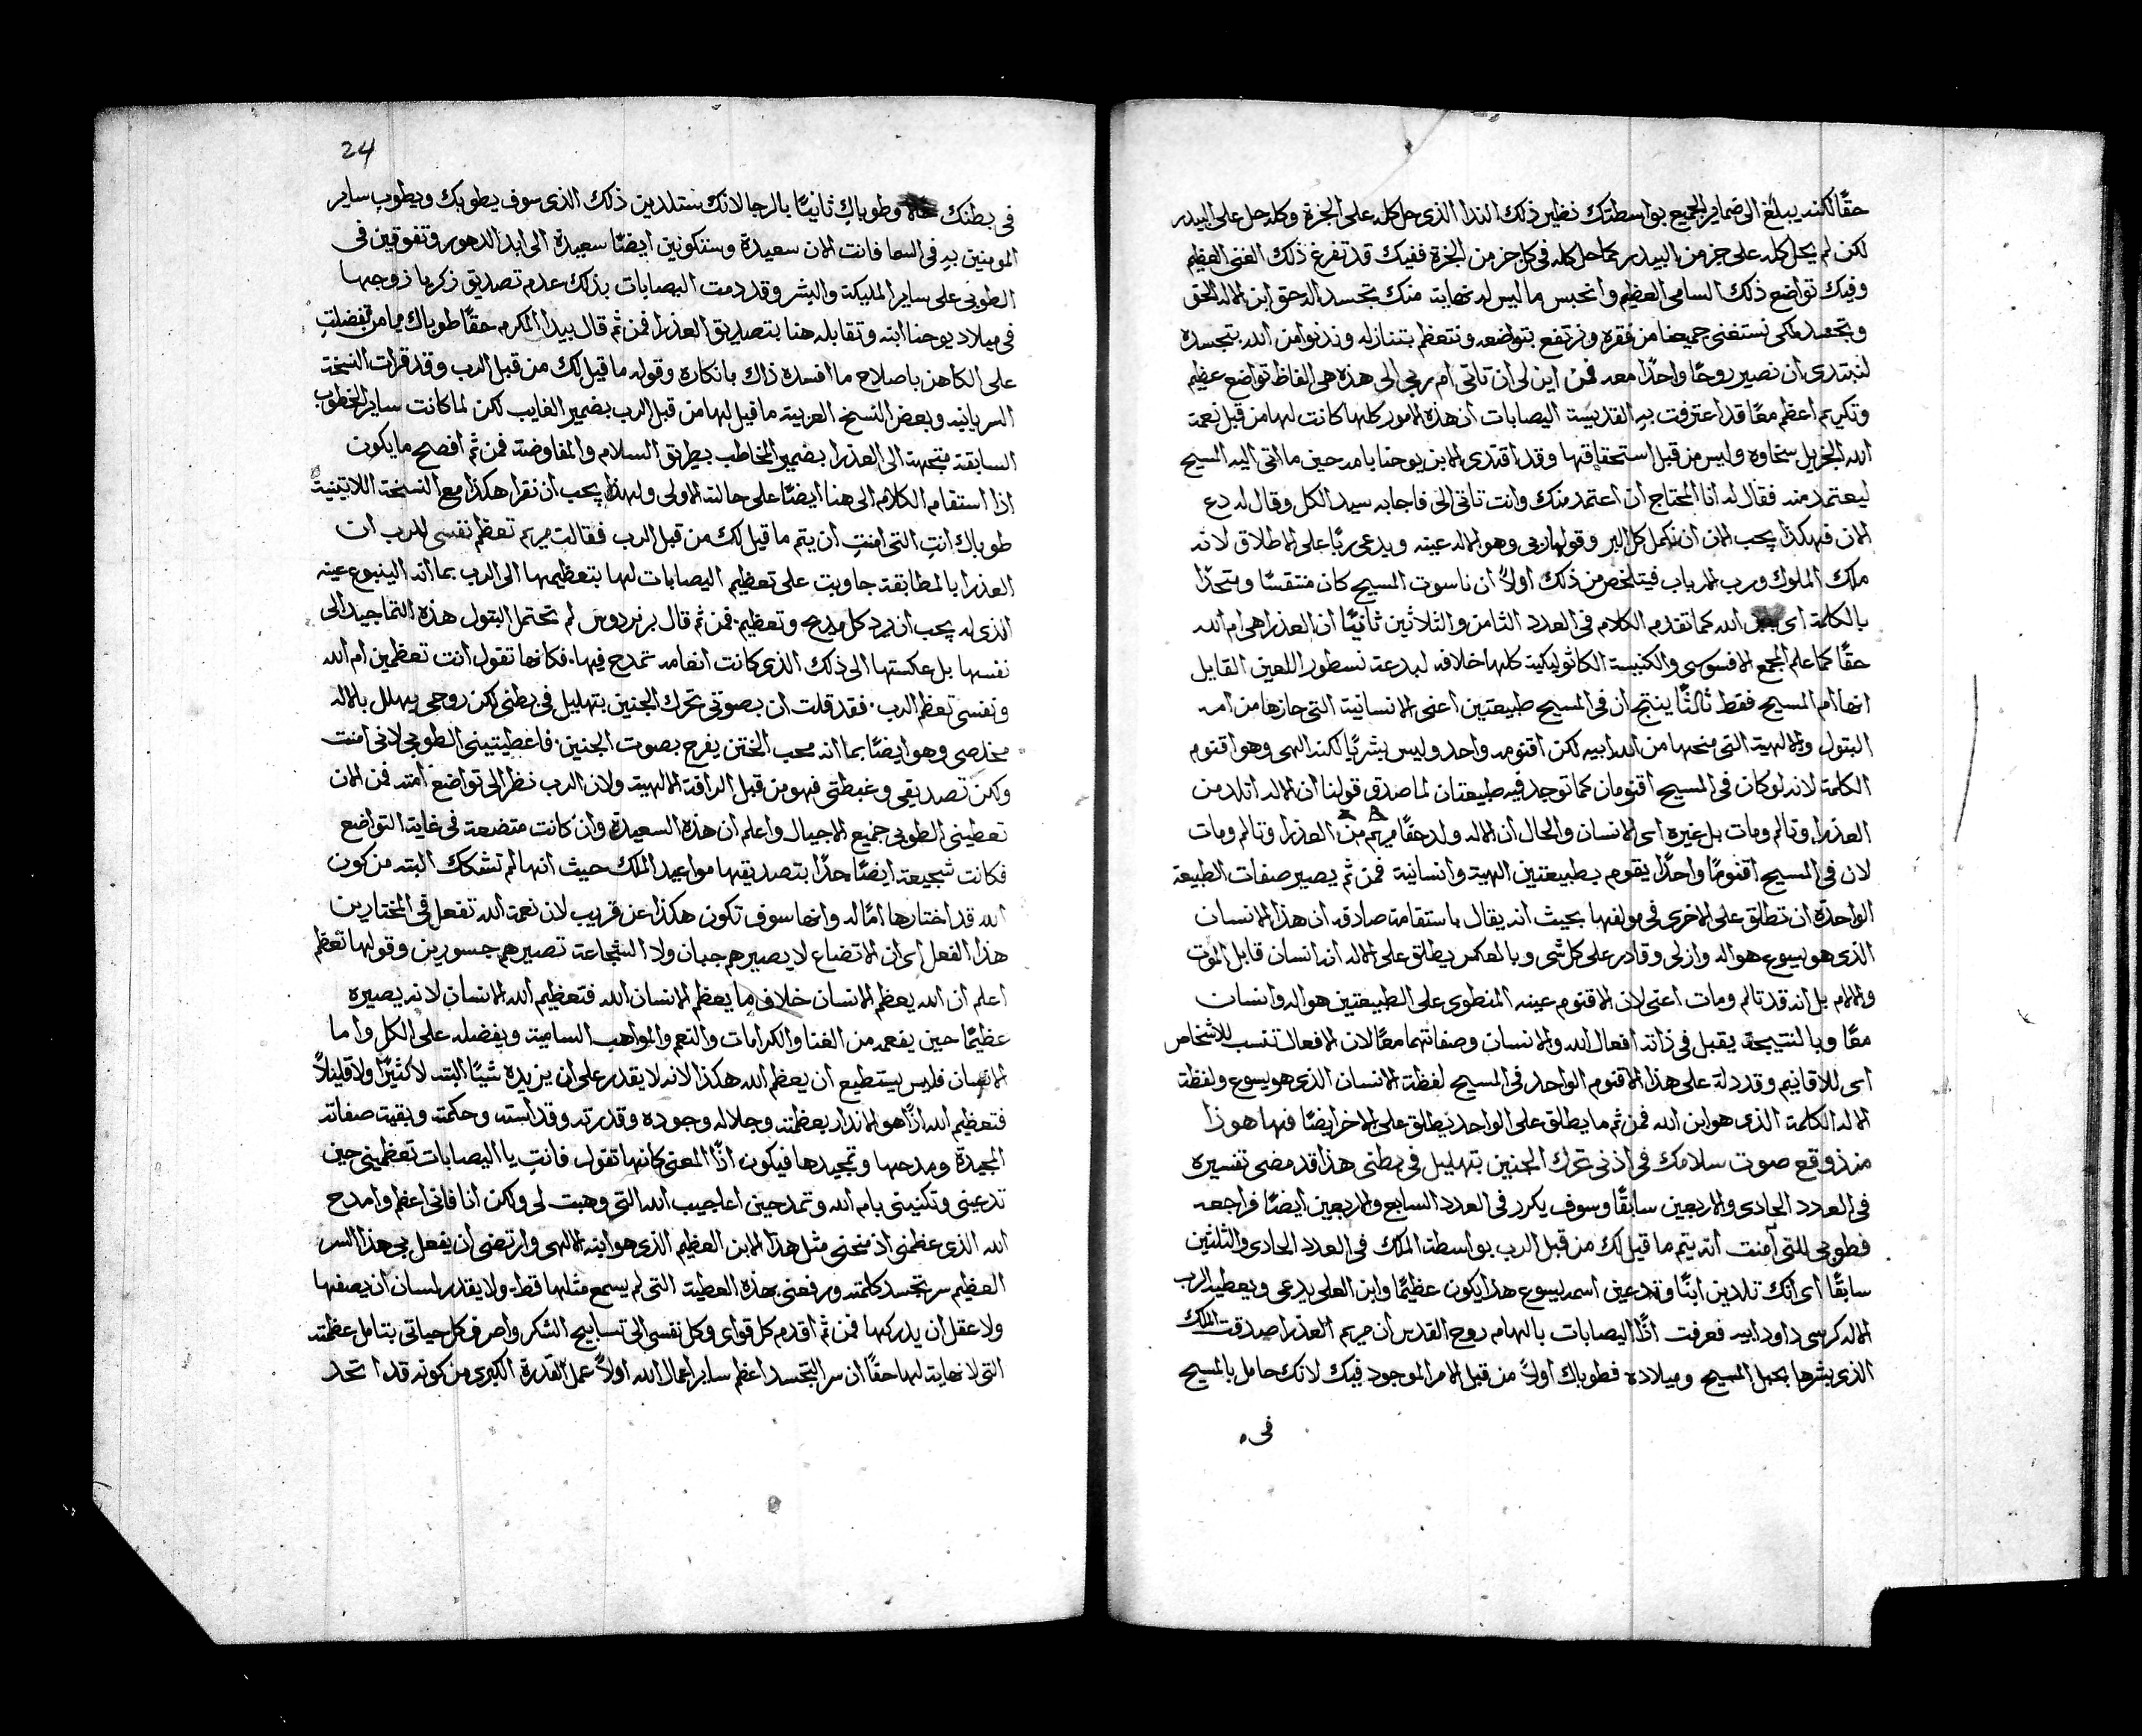 حقًا لكنه يبلغ الى ضماير الجميع بواسطتك نظير ذلك الندا الذى حل كله على الجزة وكله حل على البيدر
لكن لم يحل كله على جز من البيدر كما حل كله فى كل جز من الجزة ففيك قد تفرغ ذلك الغنى العظيم
وفيك تواضع ذلك السامى العظيم وانحبس ما ليس له نهاية منك بتجسد اله حق ابن الاله الحق
وتجسد لكى نستغنى جميعنا من فقره ونرتفع بتواضعه ونتعظم بتنازله وندنوا من الله بتجسده
لنبتدى ان نصير روحًا واحدًا معه فمن اين لى ان تاتى ام ربى الى هذه هى الفاظ تواضع عظيم
وتكريم اعظم معًا قد اعترفت به القديسة اليصابات ان هذه الامور كلها كانت لها من قبل نعمة
الله الجزيل سخاوه وليس من قبل استحقاقها وقد اقتدى الابن يوحنا بامه حين ما اتى اليه المسيح
ليعتمد منه فقال له انا المحتاج ان اعتمد منك وانت تاتى الى فاجابه سيد الكل وقال له دع
الان فهكذا يجب الان ان نكمل كل البر وقولها ربى وهو الاله عينه ويدعى ربًا على الاطلاق لانه
ملك الملوك ورب الارباب فيتلخص من ذلك اولاً ان ناسوت المسيح كان متقسًا ومتحدًا
بالكلمة اى الله كما تقدم الكلام فى العدد الثامن والثلاثين ثانيًا ان العذرا هى ام الله
حقًا كما علم المجمع الافسوسى والكنيسة الكاثوليكية كلها خلافه لبدعة نسطور اللعين القايل
انها ام المسيح فقط ثالثًا ينتج ان فى المسيح طبيعتين اعنى الانسانية التى حازها من امه
البتول والالهية التى منحها من الله ابيه لكن اقنومه واحد وليس بشريًا لكنه الهى وهو اقنوم
الكلمة لانه لو كان فى المسيح اقنومان كما توجد فيه طبيعتان لما صدق قولنا ان الاله اتلد من
العذرا وتالم ومات بل غيره اى الانسان والحال ان الاله ولد حقًا مريم من العذرا وتالم ومات
لان فى المسيح اقنومًا واحدًا يقوم بطبيعتين الهية وانسانية فمن ثم يصير صفات الطبيعة
الواحدة ان تطلق على الاخرى فى مولفها بحيث انه يقال باستقامة صادقه ان هذا الانسان
الذى هو يسوع هو اله وازلى وقادر على كل شى وبالعكس يطلق على الاله انه انسان قابل الموت
والالام بل انه قد تالم ومات اعنى لان الاقنوم عينه المنطوى على الطبيعتين هو اله وانسان
معًا وبالنتيجة يقبل فى ذاته افعال الله والانسان وصفاتهما معًا لان الافعال تنسب للاشخاص
اى للاقانيم وقد دلة على هذا الاقنوم الواحد فى المسيح لفظة الانسان الذى هو يسوع ولفظة
الاله الكلمة الذى هو ابن الله فمن ثم ما يطلق على الواحد يطلق على الاخر ايضًا فها هوذا
منذ وقع صوت سلامك فى اذنى تحرك الجنين بتهليل فى بطنى هذا قد مضى تفسيره
فى العدد الحادى والاربعين سابقًا وسوف يكرر فى العدد السابع والاربعين ايضًا فراجعه
فطوبى للتى آمنت انه يتم ما قيل لك من قبل الرب بواسطة الملك فى العدد الحادى والثلثين
سابقًا اى انك تلدين ابنًا وتدعين اسمه يسوع هذا يكون عظيمًا وابن العلى يدعى ويعطيه الرب
الاله كرسى داود ابيه فعرفت اذًا اليصابات بالهام روح القدس ان مريم العذرا صدقت الملك
الذى بشرها بحبل المسيح وميلاده فطوباك اولاً من قبل الامر الموجود فيك لانك حامل بالمسيح
فى
24
فى بطنك وطوباك ثانيًا بالرجا لانك ستلدين ذلك الذى سوف يطوبك ويطوب ساير
المومنين به فى السما فانت الان سعيدة وستكونين ايضًا سعيدة الى ابد الدهور وتفوقين فى
الطوبى على ساير المليكة والبشر وقد دمت اليصابات بذلك عدم تصديق زكريا زوجها
فى ميلاد يوحنا ابنه وتقابله هنا بتصديق العذرا فمن ثم قال بيدا المكرم حقًا طوباك يا من تفضلت
على الكاهن باصلاح ما افسده ذاك بانكاره وقوله ما قيل لك من قبل الرب وقد قرات النسخة
السريانيه وبعض النسخ العربية ما قيل لها من قبل الرب بضمير الغايب لكن لما كانت ساير الخطوب
السابقة متجهة الى العذرا بضمير المخاطب بطريق السلام والمفاوضة فمن ثم افصح ما يكون
اذا استقام الكلام الى هنا ايضًا على حالته الاولى ولهذا يجب ان نقرا هكذا مع النسخة اللاتينية
طوباك انت التى امنت ان يتم ما قيل لك من قبل الرب فقالت مريم تعظم نفسى للرب ان
العذرا بالمطابقة جاوبت على تعظيم اليصابات لها بتعظيمها الى الرب بما انه الينبوع عينه
الذى له يجب ان يرد كل مديح وتعظيم فمن ثم قال برنردوس لم تحتمل البتول هذه التماجيد الى
نفسها بل عكستها الى ذلك الذى كانت انعامه تمدح فيها فكانها تقول انت تعظمين ام الله
ونفسى تعظم الرب فقد قلت ان بصوتى تحرك الجنين بتهليل فى بطنى لكن روحى يهلل بالاله
مخلصى وهو ايضًا بما انه محب الختن يفرح بصوت الجنين فاعطيتينى الطوبى لانى امنت
ولكن تصديقى وغبطتى فهو من قبل الرافة الالهية ولان الرب نظر الى تواضع امته فمن الان
تعطينى الطوبى جميع الاجيال واعلم ان هذه السعيدة وان كانت متضعة فى غاية التواضع
فكانت شجيعة ايضًا جدًا بتصديقها مواعيد الملك حيث انها لم تشكك البته من كون
الله قد اختارها امًا له وانها سوف تكون هكذا عن قريب لان نعمة الله تفعل فى المختارين
هذا الفعل اى ان الاتضاع لا يصيرهم جبان ولا الشجاعة تصيرهم جسورين وقولها تعظم
اعلم ان الله يعظم الانسان خلاف ما يعظم الانسان الله فتعظيم الله الانسان لانه يصيره
عظيمًا حين يفعمه من الغنا والكرامات والنعم والمواهب السامية ويفضله على الكل واما
الانسان فليس يستطيع ان يعظم الله هكذا لانه لا يقدر على ان يزيده شيًا البته لا كثيرًا ولا قليلاً
فتعظيم الله اذًا هو الانذار بعظمته وجلاله وجوده وقدرته وقداسته وحكمته وبقية صفاته
المجيدة ومدحها وتمجيدها فيكون اذًا المعنى كانها تقول فانت يا اليصابات تعظمينى حين
تدعينى وتكنينى بام الله وتمدحين اعاجيب الله التى وهبت لى ولكن انا فانى اعظم وامدح
الله الذى عظمنى اذ منحنى مثل هذا الابن العظيم الذى هو ابنه الالهى وارتضى ان يفعل بى هذا السر
العظيم سر تجسد كلمته ورفعنى بهذه العطية التى لم يسمع مثلها قط ولا يقدر لسان ان يصفها
ولا عقل ان يدركها فمن ثم اقدم كل قواى وكل نفسى الى تسابيح الشكر واصرف كل حياتى بتامل عظمته
التى لا نهاية لها حقًا ان سر التجسد اعظم ساير اعمال الله اولاً عمل القدرة الكبرى من كونه قد اتحد